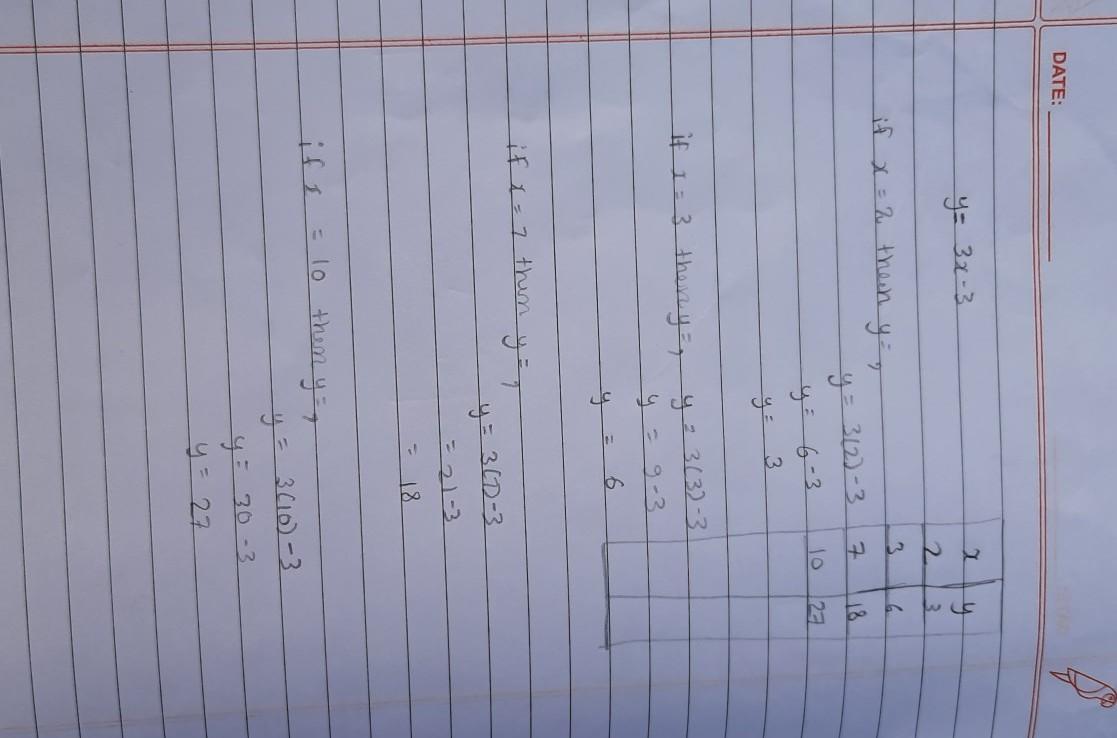 DATE:
y= 3x-3
x y
2 3
3 6
7 18
10 27
if x = 2 then y= ?
y = 3(2)-3
y = 6-3
y = 3
if x = 3 then y= ?
y = 3(3)-3
y = 9-3
y = 6
if x = 7 then y= ?
y = 3(7)-3
= 21-3
= 18
if x = 10 then y= ?
y = 3(10)-3
y = 30-3
y = 27